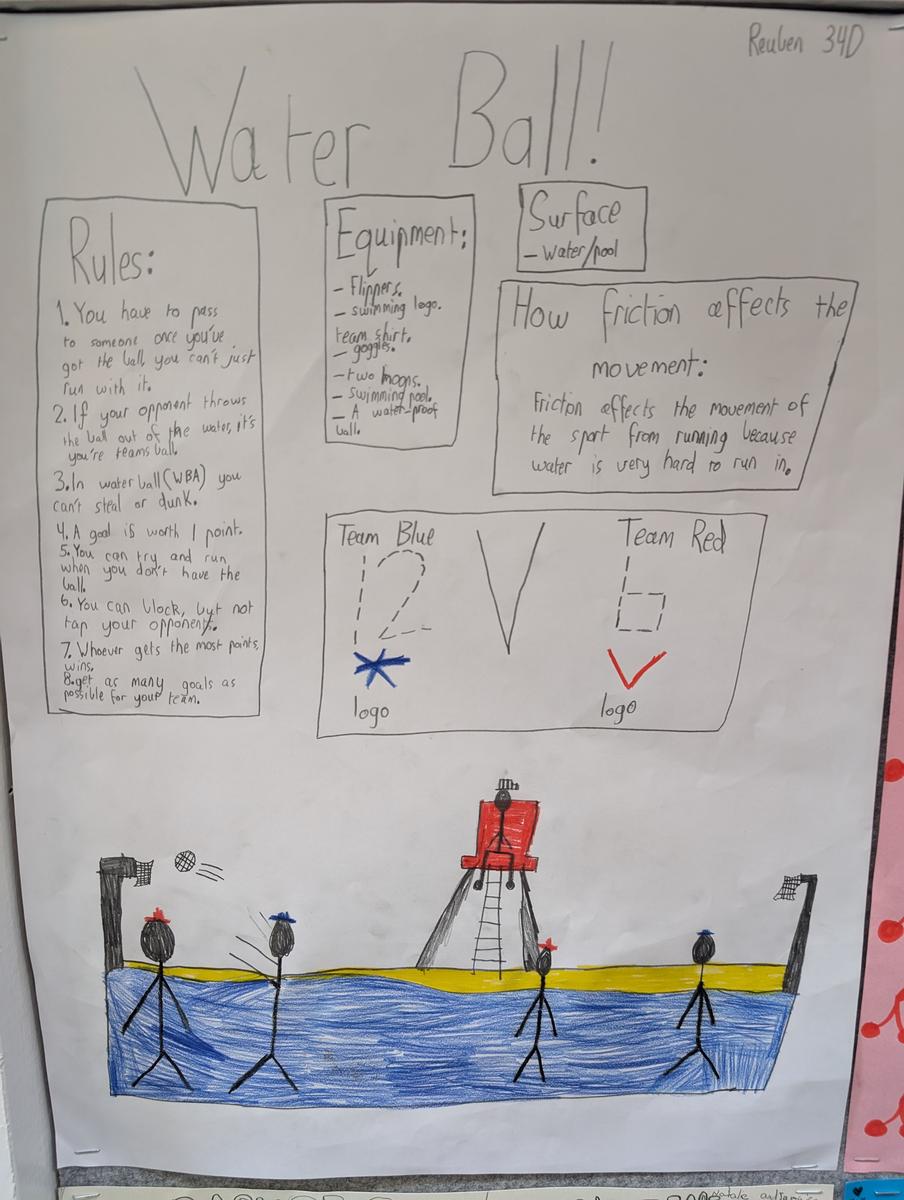 Reuben 34D
Water Ball!
Rules:
1. You have to pass
to someone once you've
got the ball, you can't just
run with it.
2. If your opponent throws
the ball out of the water, it's
you're teams ball.
3. In water ball (WBA) you
can't steal or dunk.
4. A goal is worth 1 point.
5. You can try and run
when you don't have the
ball.
6. You can block, but not
tap your opponent.
7. Whoever gets the most points,
wins.
8. get as many goals as
possible for your team.
Equipment:
- Flippers.
- swimming logo.
team shirt.
- goggles.
- two hoops.
- swimming pool.
- A water-proof
ball.
Surface
- Water/pool
How friction affects the
movement:
Friction affects the movement of
the sport from running because
water is very hard to run in.
Team Blue V Team Red
12 6
logo logo